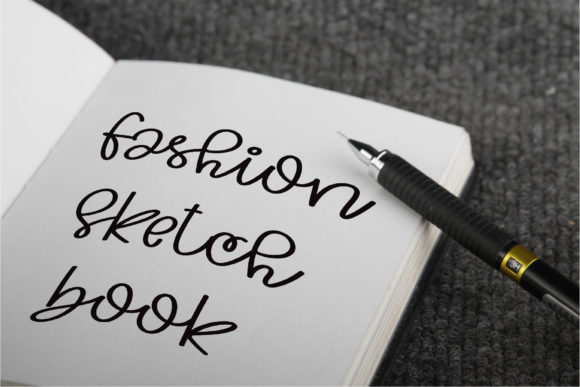 fashion
sketch
book